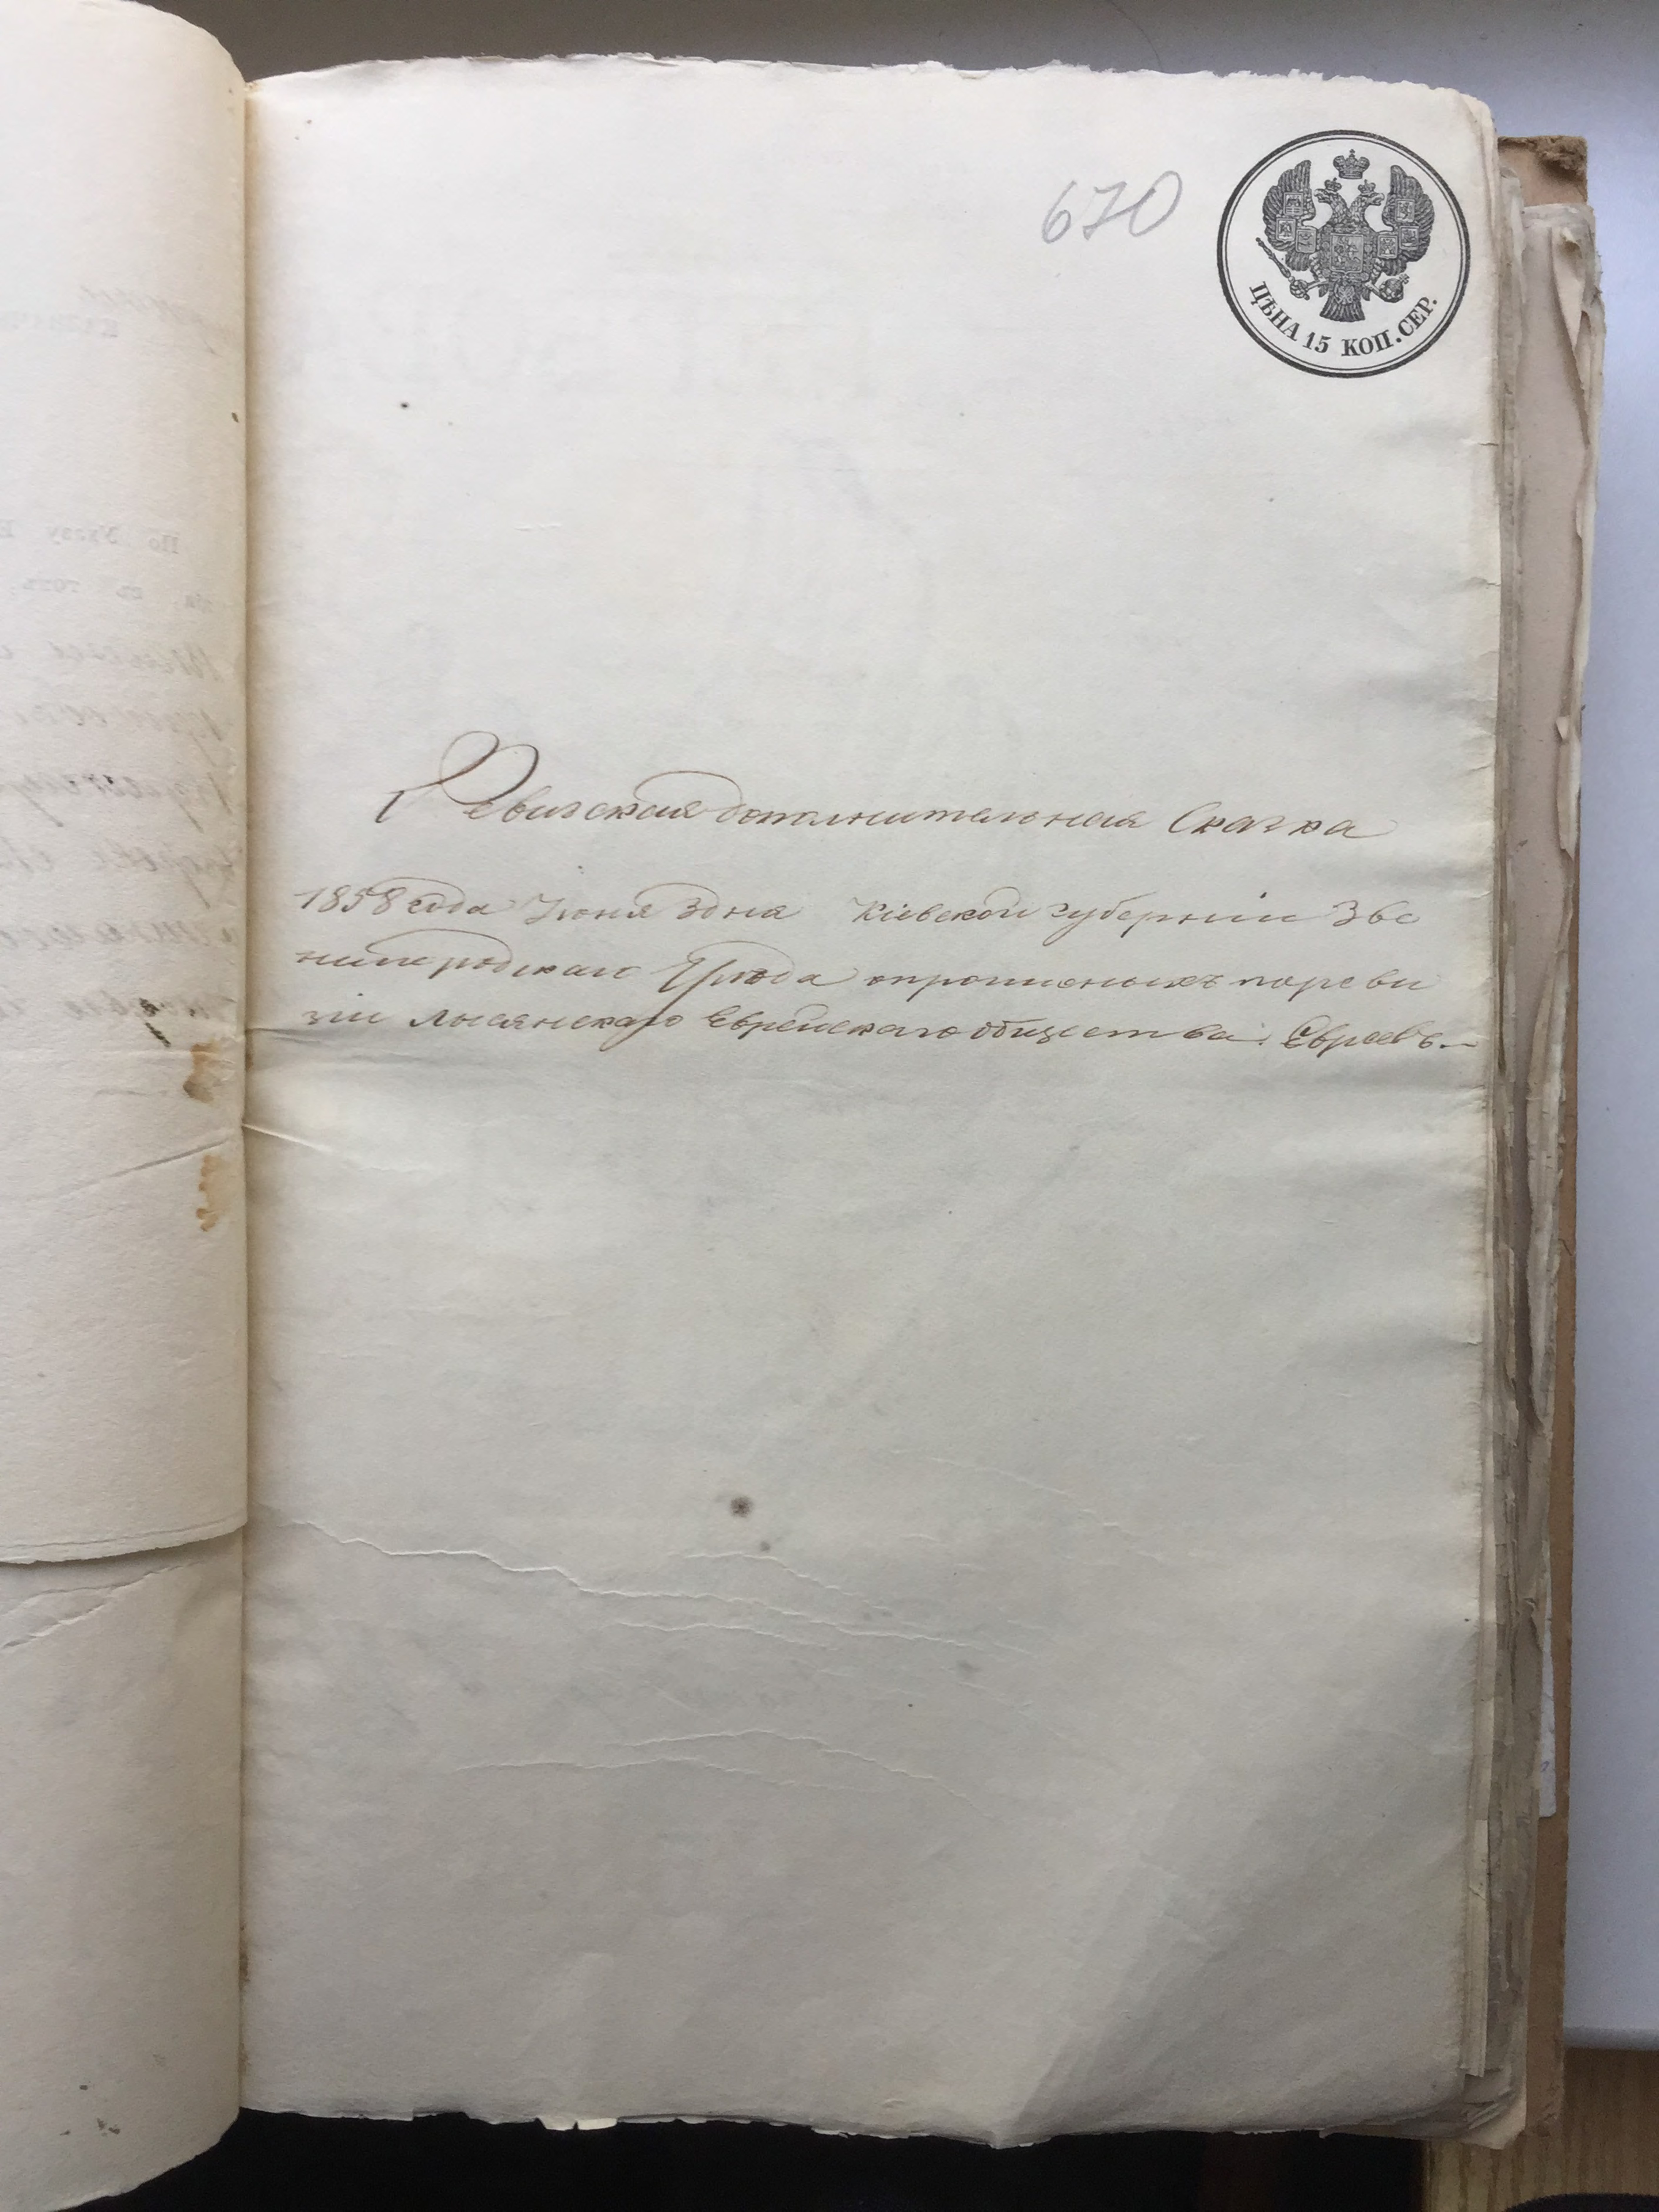 670
ЦѢНА 15 КОП. СЕР.
Ревизская дополнительная Сказка
1858 года Іюня 3 дня Кіевской губерніи Зве
нигородскаго Уѣзда опропиеныхъ пореви
зіи Лысянскаго Еврейскаго общества: Евреевъ.—
По Указу